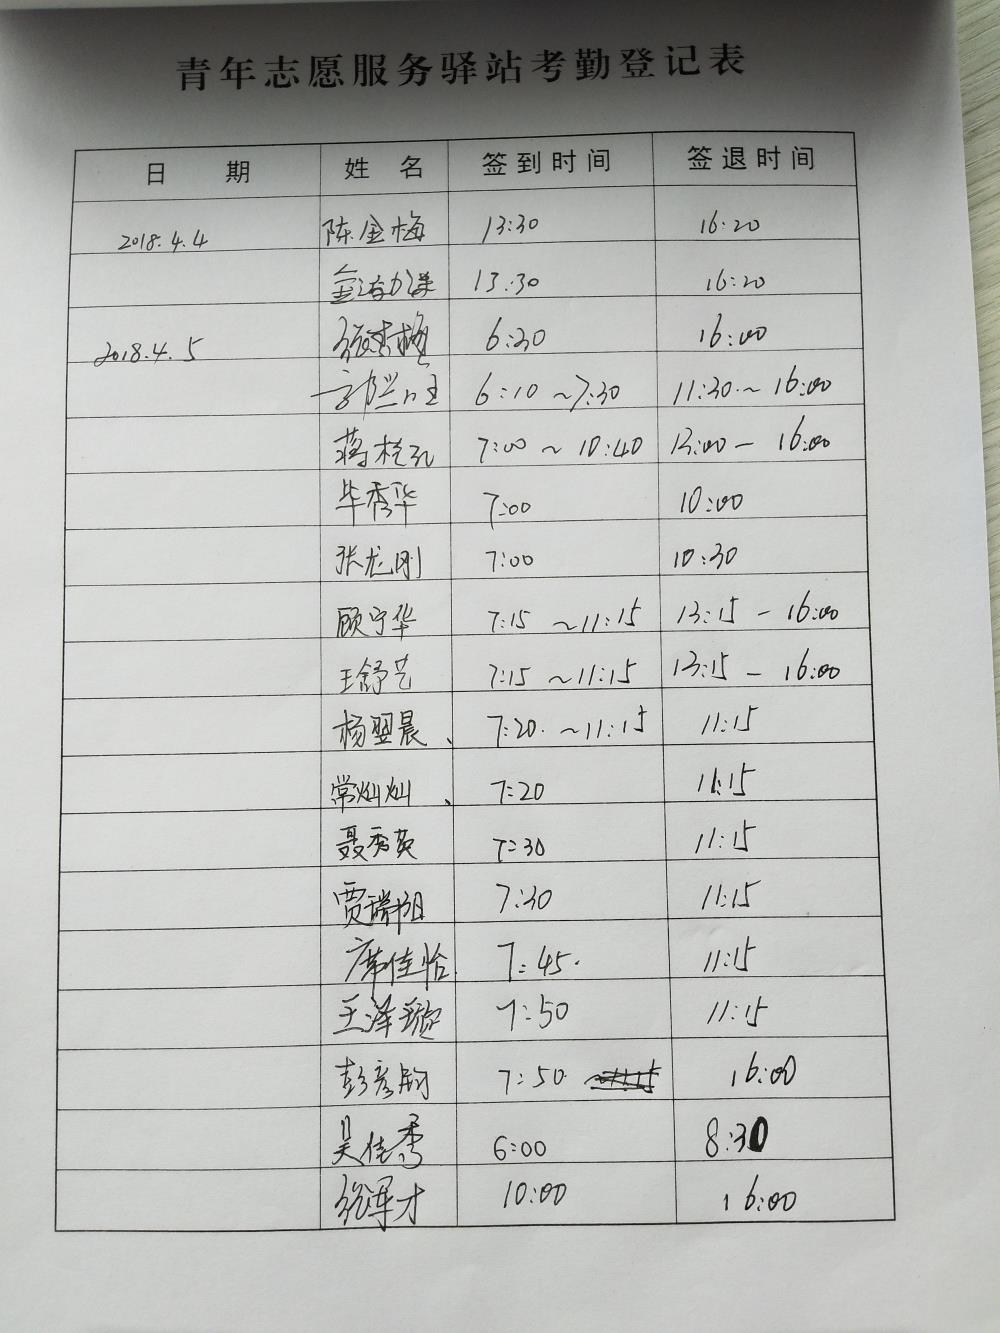 青年志愿服务驿站考勤登记表
日 期 姓 名 签到时间 签退时间
2018.4.4 陈金梅 13:30 16:20
13:30 16:20
2018.4.5 6:30 16:00
6:10 ~7:30 11:30.~ 16:00
蒋 7:00 ~ 10:40 13:00 - 16:00
毕秀华 7:00 10:00
张龙刚 7:00 10:30
顾宁华 7:15 ~11:15 13:15 - 16:00
王舒艺 7:15 ~11:15 13:15 - 16:00
杨翌晨、 7:20. ~11:15 11:15
常灿灿、 7:20 11:15
聂秀英 7:30 11:15
贾瑞 7:30 11:15
席佳怡. 7:45. 11:15
王泽璇 7:50 11:15
彭彦钧 7:50. 16:00
吴佳秀 6:00 8:30
张军才 10:00 16:00